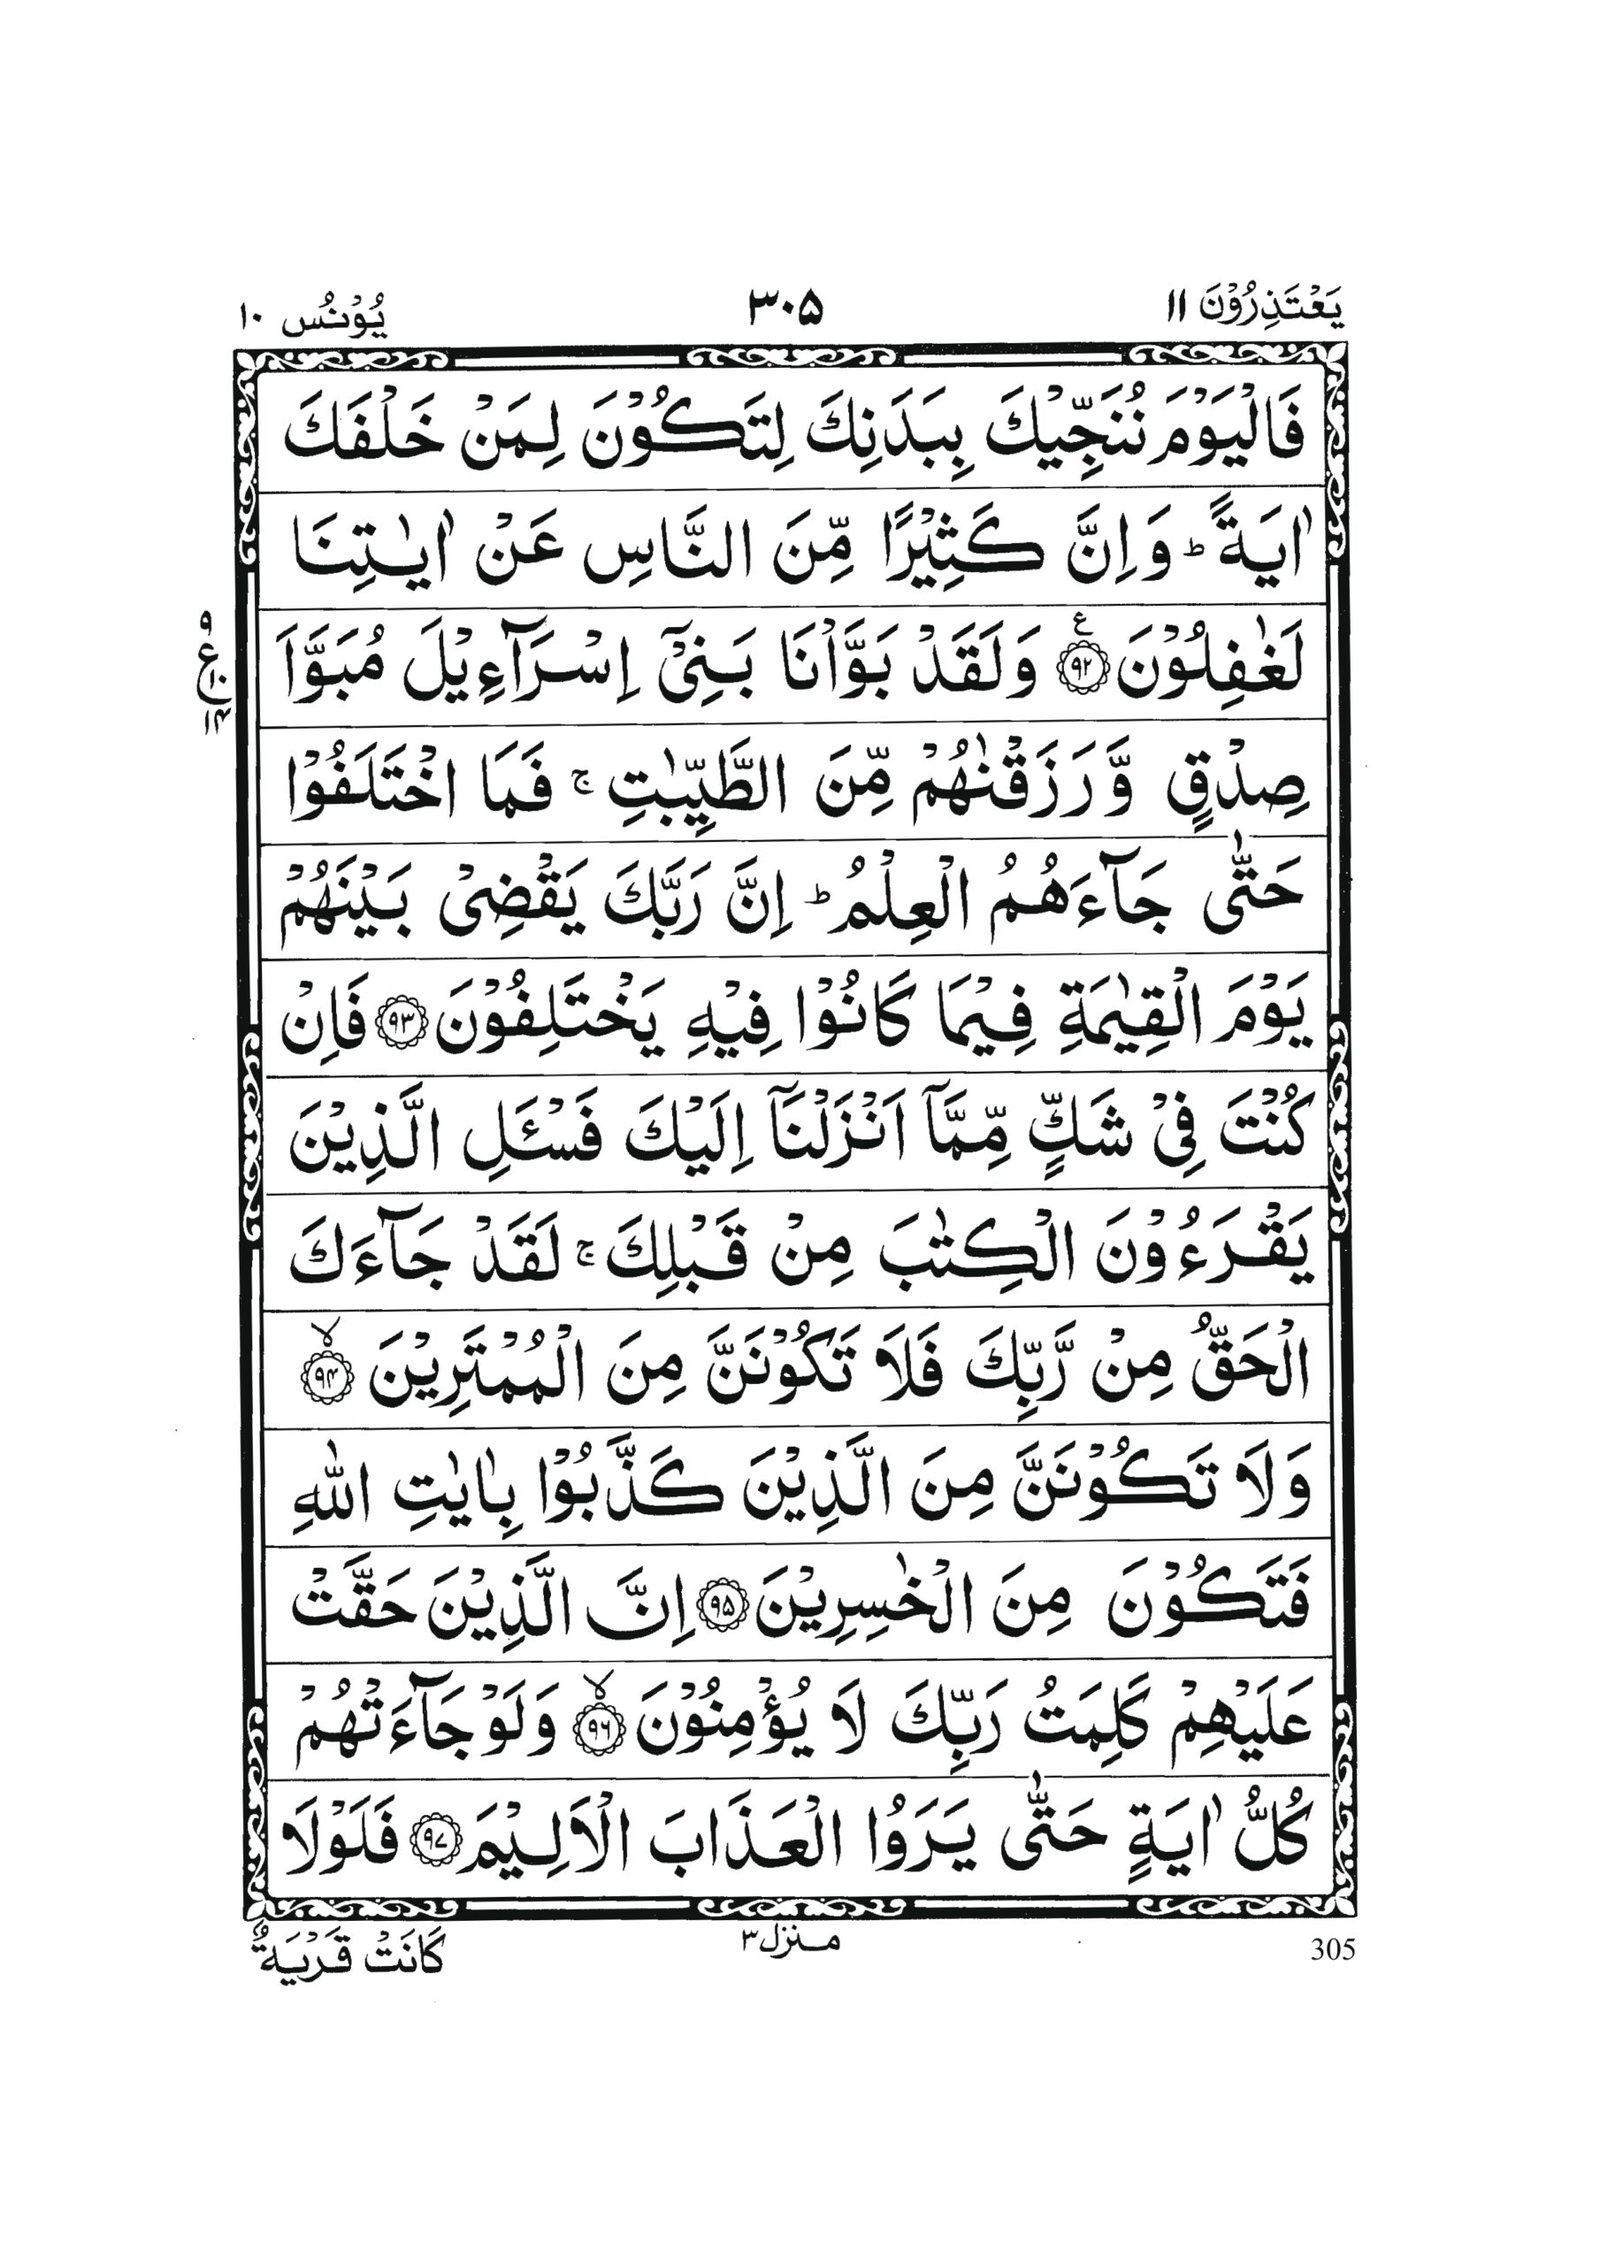 یَعْتَذِرُوْنَ ۱۱
۳۰۵
یُوْنُس ۱۰
فَالْیَوْمَ نُنَجِّیْكَ بِبَدَنِكَ لِتَكُوْنَ لِمَنْ خَلْفَكَ
اٰیَةً ؕ وَ اِنَّ كَثِیْرًا مِّنَ النَّاسِ عَنْ اٰیٰتِنَا
لَغٰفِلُوْنَ ۟۠ ﴿۹۲﴾ وَ لَقَدْ بَوَّاْنَا بَنِیْۤ اِسْرَآءِیْلَ مُبَوَّاَ
صِدْقٍ وَّ رَزَقْنٰهُمْ مِّنَ الطَّیِّبٰتِ ۚ فَمَا اخْتَلَفُوْا
حَتّٰی جَآءَهُمُ الْعِلْمُ ؕ اِنَّ رَبَّكَ یَقْضِیْ بَیْنَهُمْ
یَوْمَ الْقِیٰمَةِ فِیْمَا كَانُوْا فِیْهِ یَخْتَلِفُوْنَ ﴿۹۳﴾ فَاِنْ
كُنْتَ فِیْ شَكٍّ مِّمَّاۤ اَنْزَلْنَاۤ اِلَیْكَ فَسْـَٔلِ الَّذِیْنَ
یَقْرَءُوْنَ الْكِتٰبَ مِنْ قَبْلِكَ ۚ لَقَدْ جَآءَكَ
الْحَقُّ مِنْ رَّبِّكَ فَلَا تَكُوْنَنَّ مِنَ الْمُمْتَرِیْنَ ۙ ﴿۹۴﴾
وَ لَا تَكُوْنَنَّ مِنَ الَّذِیْنَ كَذَّبُوْا بِاٰیٰتِ اللّٰهِ
فَتَكُوْنَ مِنَ الْخٰسِرِیْنَ ﴿۹۵﴾ اِنَّ الَّذِیْنَ حَقَّتْ
عَلَیْهِمْ كَلِمَتُ رَبِّكَ لَا یُؤْمِنُوْنَ ۙ ﴿۹۶﴾ وَ لَوْ جَآءَتْهُمْ
كُلُّ اٰیَةٍ حَتّٰی یَرَوُا الْعَذَابَ الْاَلِیْمَ ﴿۹۷﴾ فَلَوْلَا
305
منزل ۳
كَانَتْ قَرْیَةٌ